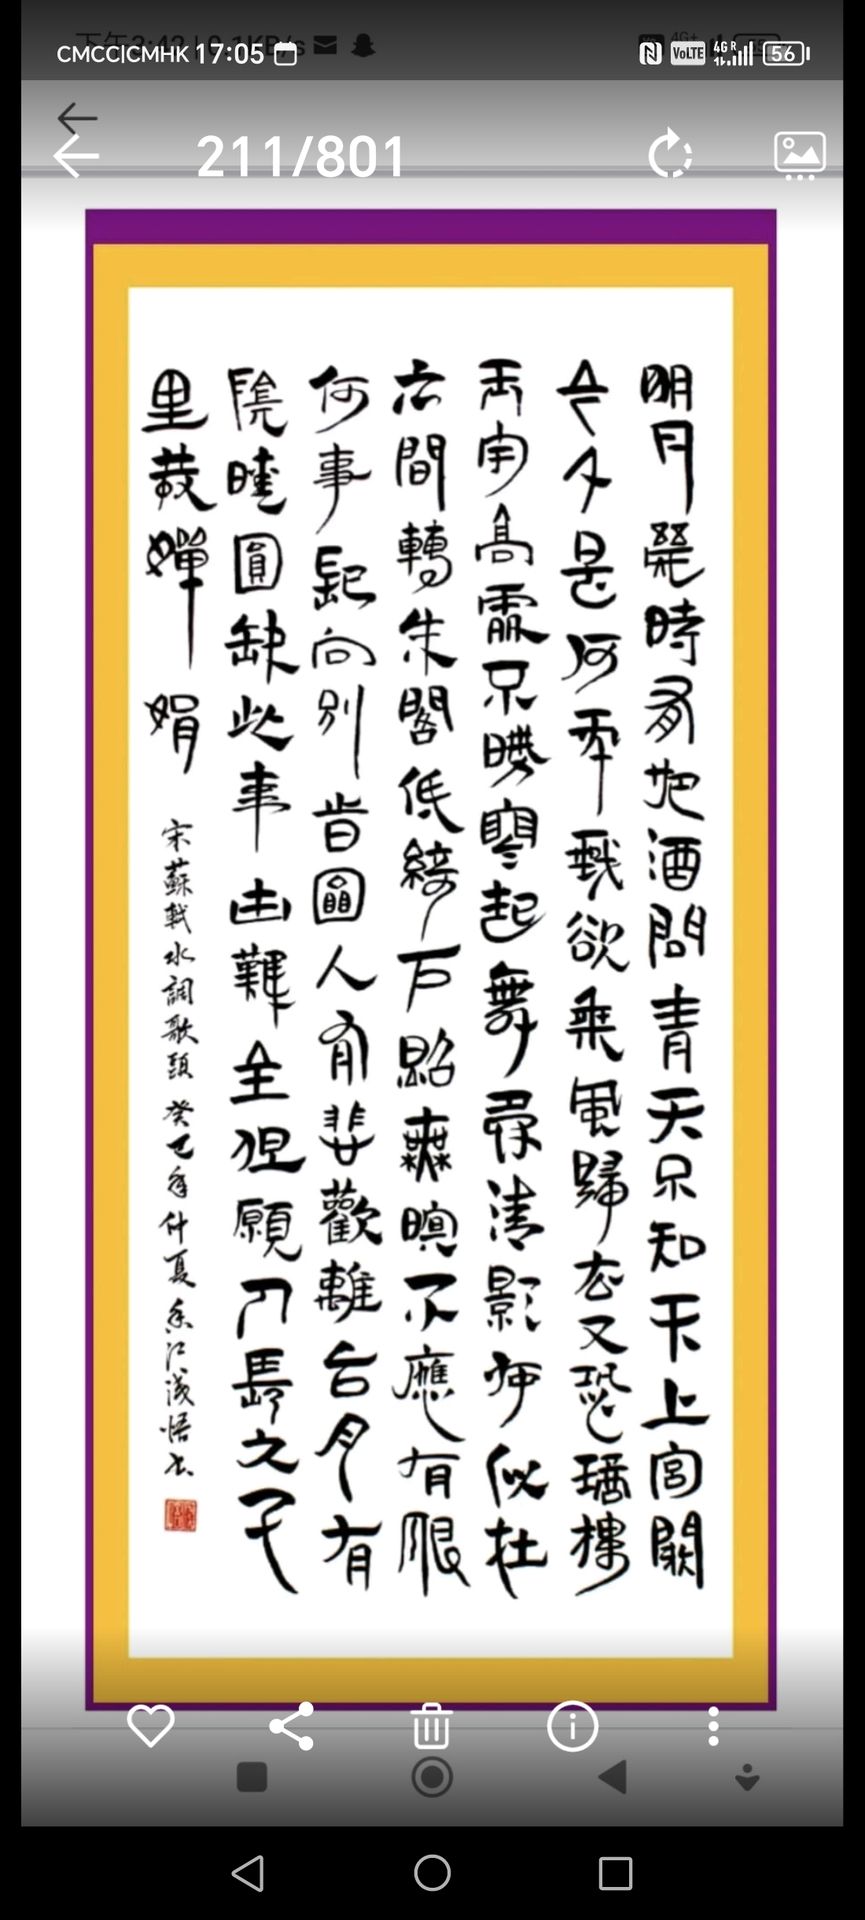 CMCC|CMHK 17:05 4G VoLTE 56
下午3:42 | 0.1KB/s
211/801
明月幾時有把酒問青天不知天上宮闕
今夕是何年我欲乘風歸去又恐瓊樓
玉宇高處不勝寒起舞弄清影何似在
人間轉朱閣低綺戶照無眠不應有恨
何事長向別時圓人有悲歡離合月有
陰晴圓缺此事古難全但願人長久千
里共嬋娟
宋蘇軾水調歌頭 癸巳年仲夏香江淺悟書